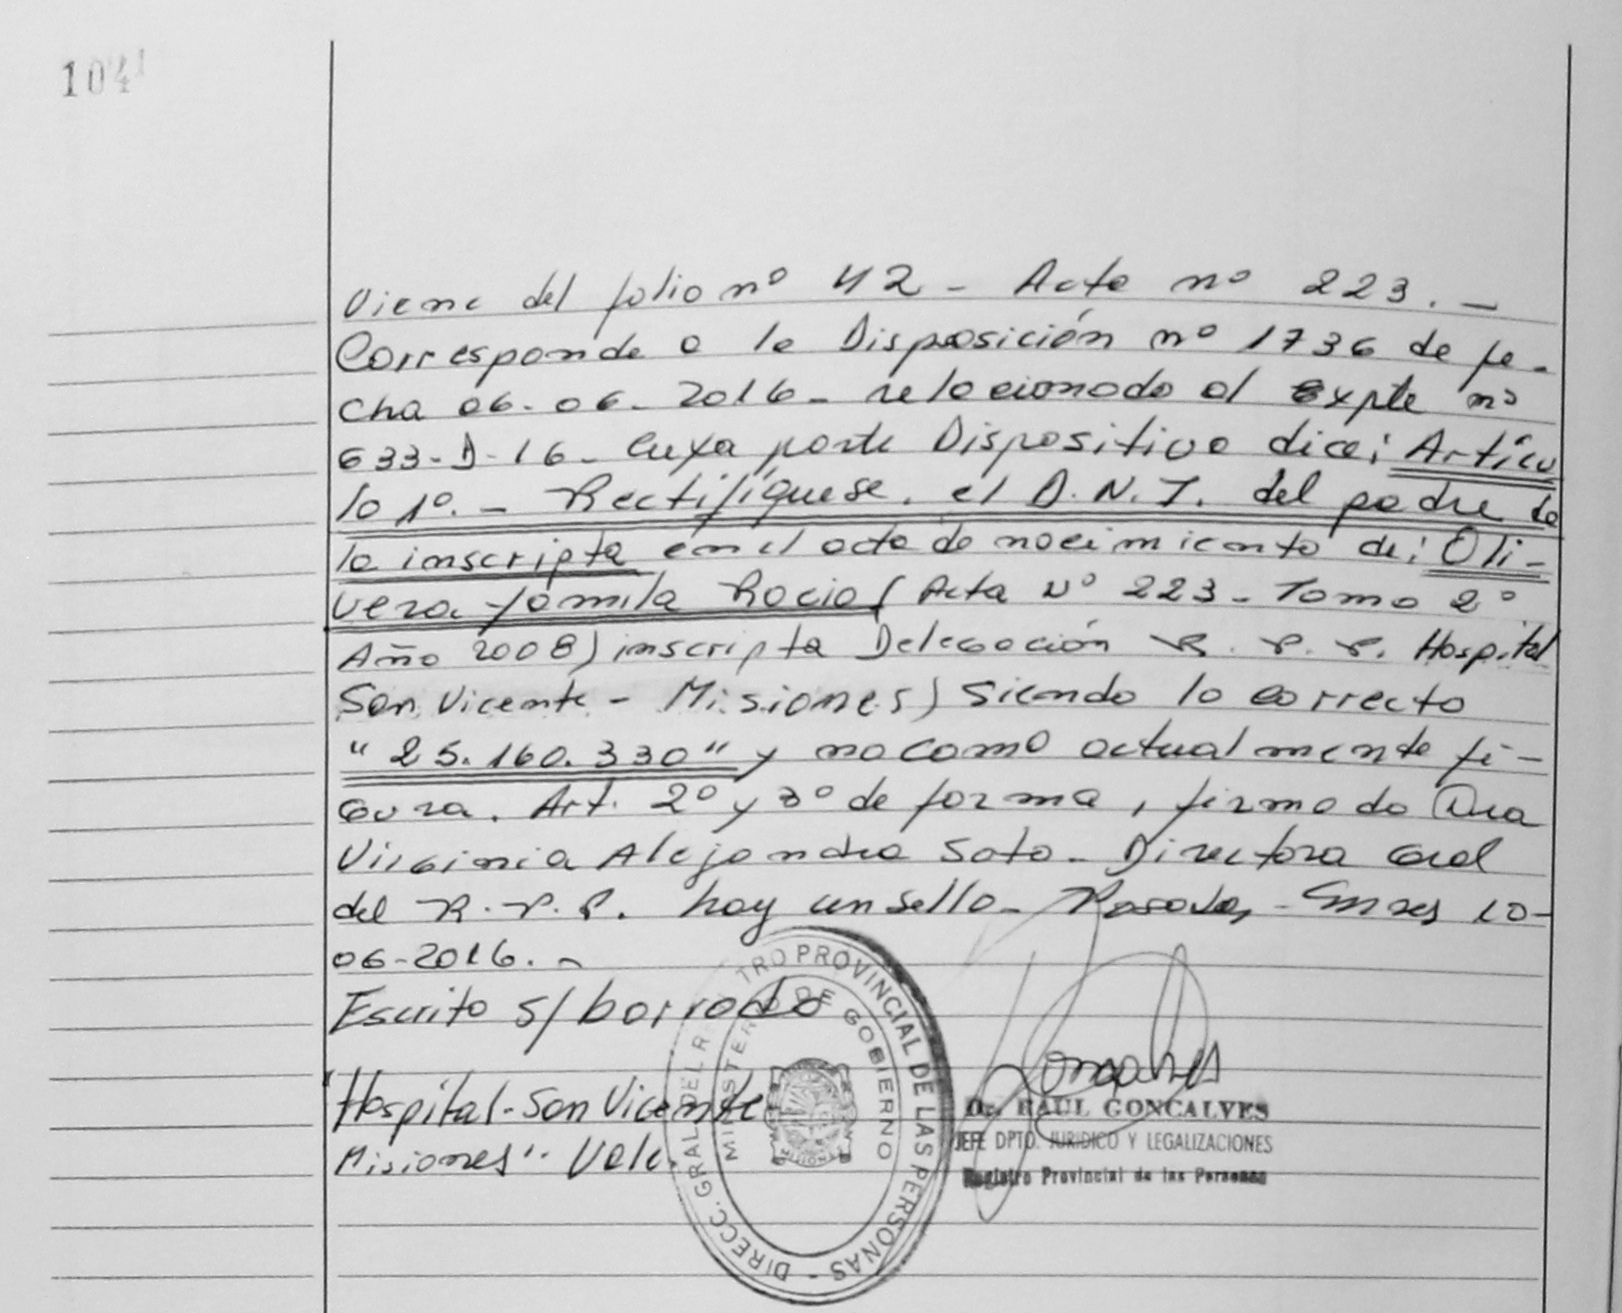 104
Viene del folio nº 42 - Acta nº 223. -
Corresponde a la Disposición nº 1736 de fe-
cha 06-06-2016- relacionado al expte nº
633-D-16- cuya parte Dispositiva dice: Artícu
lo 1º. - Rectifíquese. el D.N.I. del padre de
la inscripta en el acta de nacimiento de: Oli-
vera Yamila Rocio ( Acta Nº 223 - Tomo 2º
Año 2008) inscripta Delegación R. P. P. Hospital
San Vicente - Misiones) Siendo lo correcto
"25.160.330" y no como actualmente fi-
gura. Art. 2º y 3º de forma, firmado Dra
Virginia Alejandra Soto - Directora Gral
del R. P. P. hay un sello - Posadas, - Mnes 10-
06-2016. -
Escrito s/ borrado
"Hospital - San Vicente
Misiones" - Vale.
DIRECC. GRAL. DEL REGISTRO PROVINCIAL DE LAS PERSONAS -
MINISTERIO DE GOBIERNO
MISIONES
Goncalves
Dr. RAUL GONCALVES
JEFE DPTO. JURIDICO Y LEGALIZACIONES
Registro Provincial de las Personas